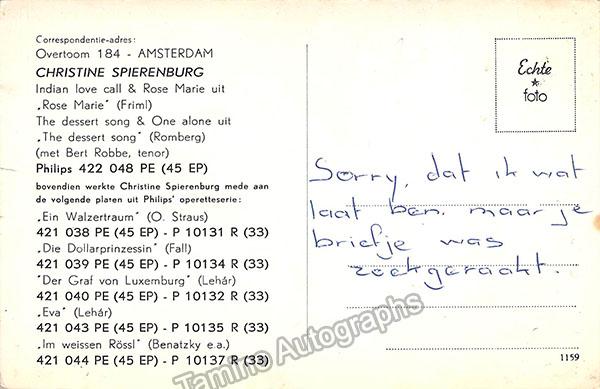 Correspondentie-adres:
Overtoom 184 - AMSTERDAM
CHRISTINE SPIERENBURG
Indian love call & Rose Marie uit
„Rose Marie" (Friml)
The dessert song & One alone uit
„The dessert song" (Romberg)
(met Bert Robbe, tenor)
Philips 422 048 PE (45 EP)
bovendien werkte Christine Spierenburg mede aan
de volgende platen uit Philips' operetteserie:
„Ein Walzertraum" (O. Straus)
421 038 PE (45 EP) - P 10131 R (33)
„Die Dollarprinzessin" (Fall)
421 039 PE (45 EP) - P 10134 R (33)
"Der Graf von Luxemburg" (Lehár)
421 040 PE (45 EP) - P 10132 R (33)
„Eva" (Lehár)
421 043 PE (45 EP) - P 10135 R (33)
„Im weissen Rössl" (Benatzky e.a.)
421 044 PE (45 EP) - P 10137 R (33)
Echte
foto
Sorry, dat ik wat
laat ben. maar je
briefje was
zoekgeraakt.
1159
Tamino Autographs